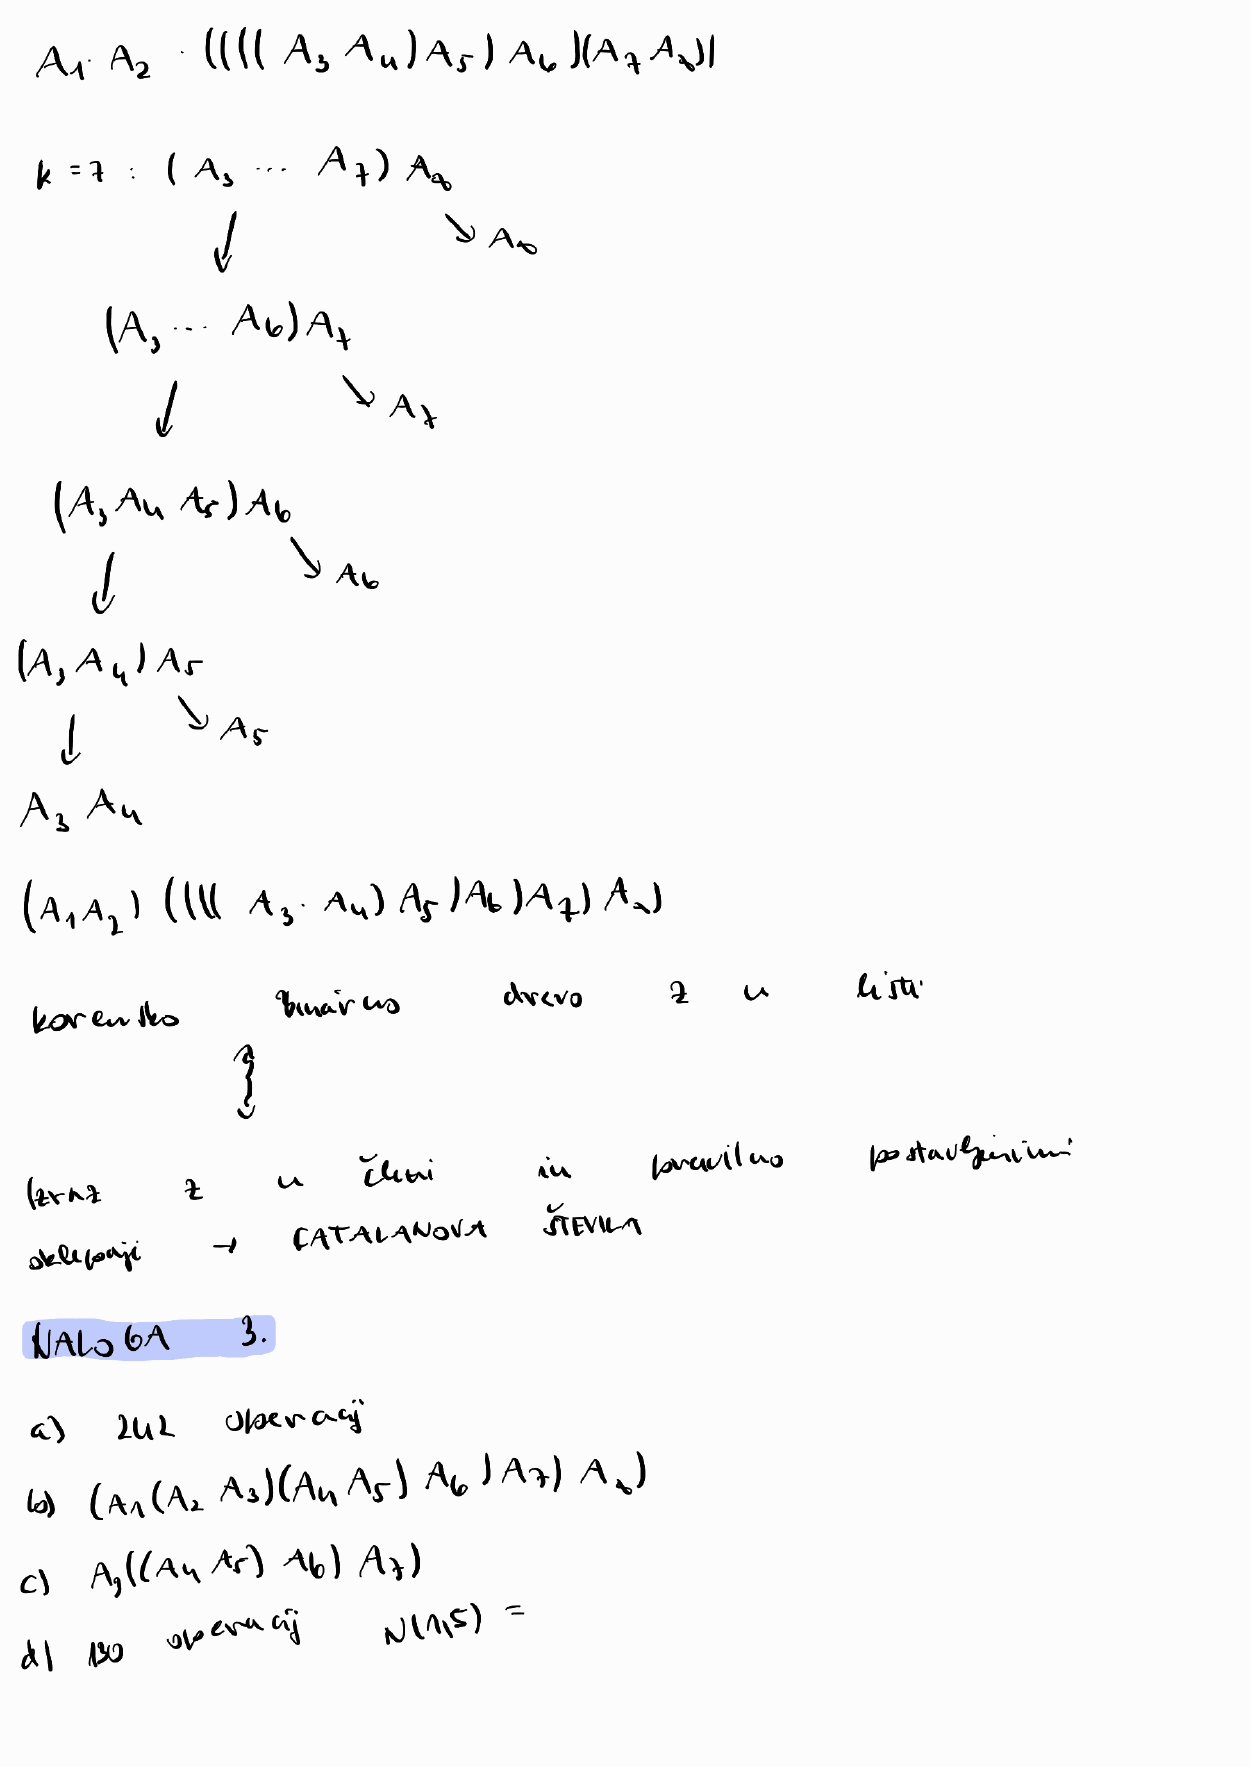 A₁ · A₂ · ((((A₃ A₄) A₅) A₆)(A₇ A₈))
k = 7 : (A₃ ... A₇) A₈
↓ ↘ A₈
(A₃ ... A₆) A₇
↓ ↘ A₇
(A₃ A₄ A₅) A₆
↓ ↘ A₆
(A₃ A₄) A₅
↓ ↘ A₅
A₃ A₄
(A₁ A₂) ((((A₃ · A₄) A₅) A₆) A₇) A₈)
korensko binarno drevo z n listi
↕
Izraz z n členi in pravilno postavljenimi
oklepaji → CATALANOVA ŠTEVILA
NALOGA 3.
a) 242 operacij
b) (A₁ (A₂ A₃)(A₄ A₅) A₆) A₇) A₈)
c) A₃((A₄ A₅) A₆) A₇)
d) 130 operacij N(1,5) =